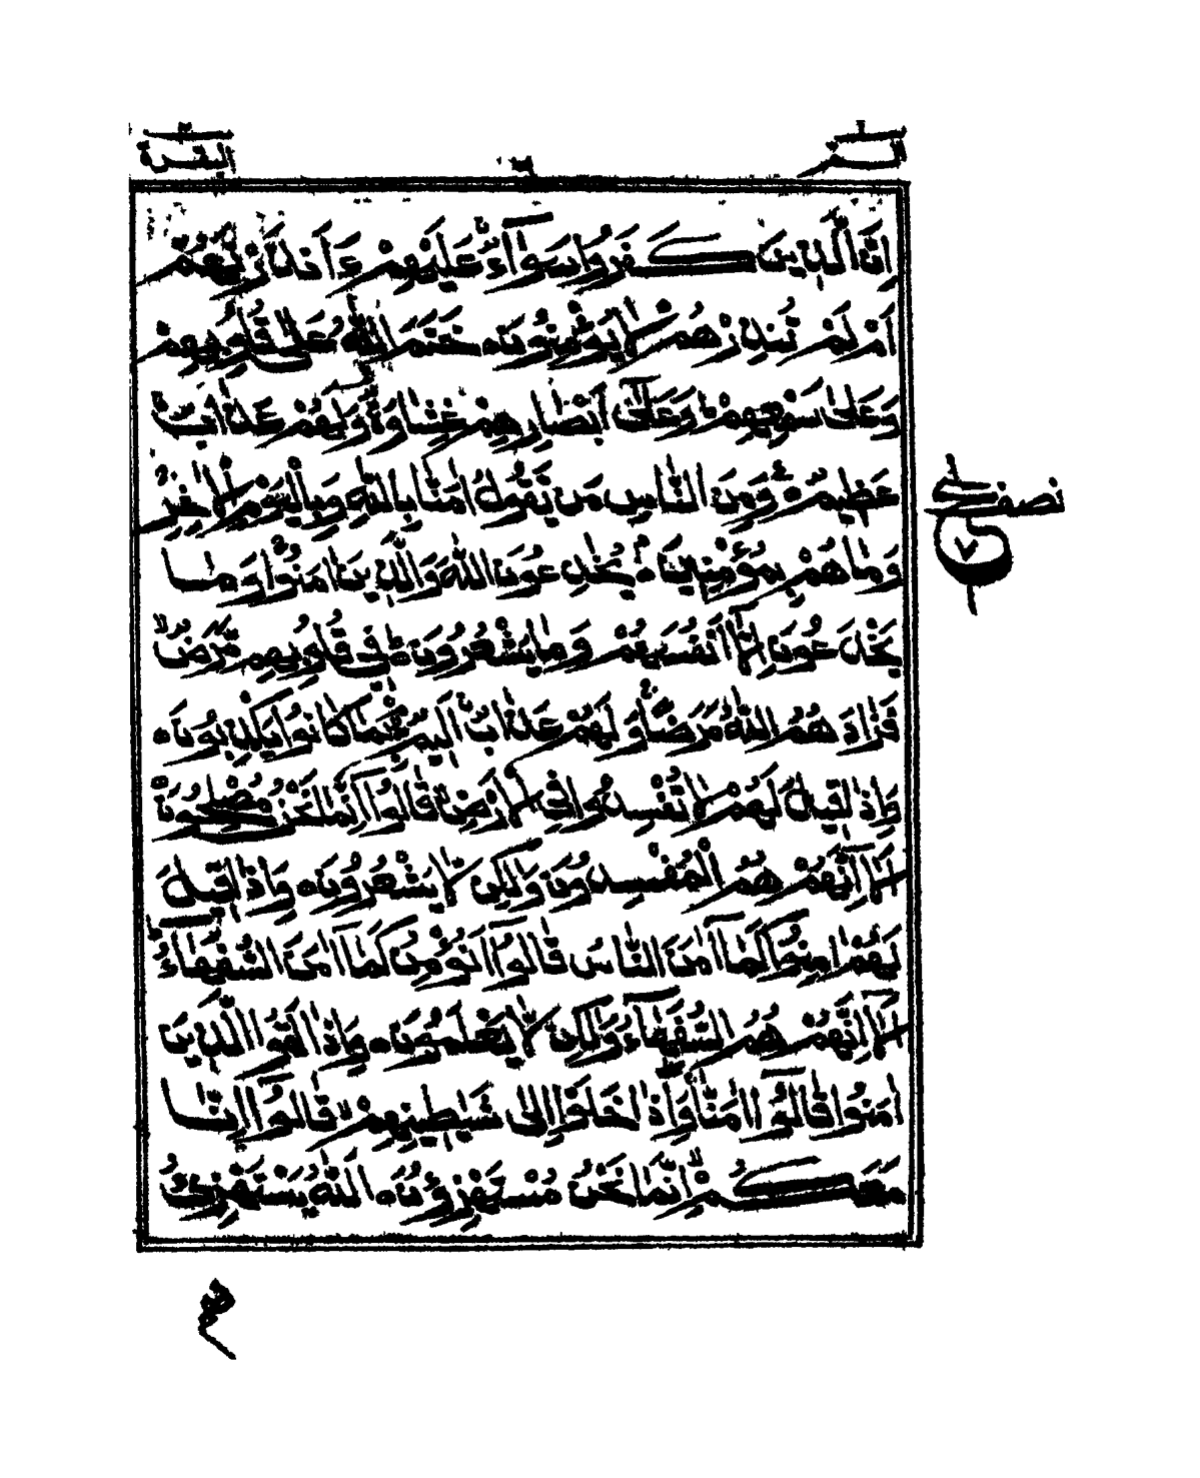 الٓمّٓ
البقرة
اِنَّ الَّذِيْنَ كَفَرُوْا سَوَآءٌ عَلَيْهِمْ ءَاَنْذَرْتَهُمْ
اَمْ لَمْ تُنْذِرْهُمْ لَا يُؤْمِنُوْنَ ۝ خَتَمَ اللّٰهُ عَلٰى قُلُوْبِهِمْ
وَعَلٰى سَمْعِهِمْ ؕ وَعَلٰٓى اَبْصَارِهِمْ غِشَاوَةٌ وَّلَهُمْ عَذَابٌ
عَظِيْمٌ ۝ وَمِنَ النَّاسِ مَنْ يَّقُوْلُ اٰمَنَّا بِاللّٰهِ وَبِالْيَوْمِ الْاٰخِرِ
وَمَا هُمْ بِمُؤْمِنِيْنَ ۝ يُخٰدِعُوْنَ اللّٰهَ وَالَّذِيْنَ اٰمَنُوْا وَمَا
يَخْدَعُوْنَ اِلَّآ اَنْفُسَهُمْ وَمَا يَشْعُرُوْنَ ؕ فِيْ قُلُوْبِهِمْ مَّرَضٌ ۙ
فَزَادَهُمُ اللّٰهُ مَرَضًا وَلَهُمْ عَذَابٌ اَلِيْمٌ بِمَا كَانُوْا يَكْذِبُوْنَ ۝
وَاِذَا قِيْلَ لَهُمْ لَا تُفْسِدُوْا فِي الْاَرْضِ قَالُوْٓا اِنَّمَا نَحْنُ مُصْلِحُوْنَ
اَلَآ اِنَّهُمْ هُمُ الْمُفْسِدُوْنَ وَلٰكِنْ لَّا يَشْعُرُوْنَ ۝ وَاِذَا قِيْلَ
لَهُمْ اٰمِنُوْا كَمَآ اٰمَنَ النَّاسُ قَالُوْٓا اَنُؤْمِنُ كَمَآ اٰمَنَ السُّفَهَآءُ
اَلَآ اِنَّهُمْ هُمُ السُّفَهَآءُ وَلٰكِنْ لَّا يَعْلَمُوْنَ ۝ وَاِذَا لَقُوا الَّذِيْنَ
اٰمَنُوْا قَالُوْٓا اٰمَنَّا وَاِذَا خَلَوْا اِلٰى شَيٰطِيْنِهِمْ ۙ قَالُوْٓا اِنَّا
مَعَكُمْ ۙ اِنَّمَا نَحْنُ مُسْتَهْزِءُوْنَ ۝ اَللّٰهُ يَسْتَهْزِئُ